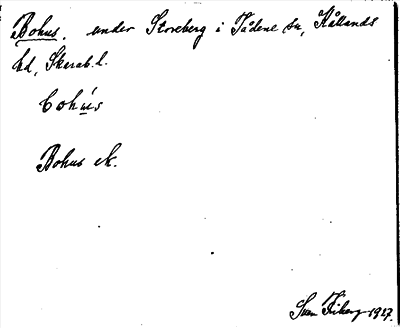 Bohus, under Storeberg i Tådene sn, Kållands
hd, Skarab. l.
bohús
Bohus ek.
Sven Ekberg 1927.